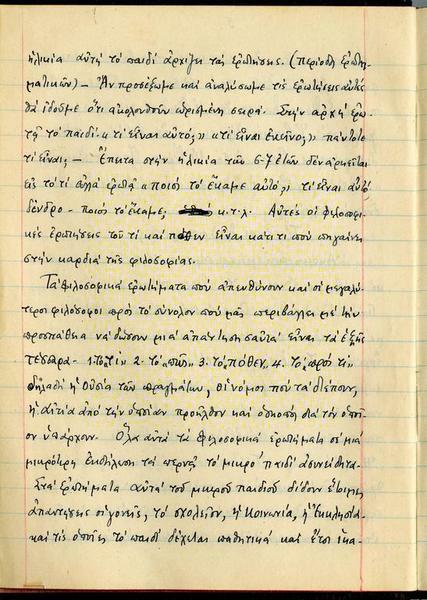 ἡλικία αὐτή τό παιδί ἀρχίζει τάς ἐρωτήσεις. (περίοδος ἐρωτη-
ματικῶν) – Ἄν προσέξωμε καί ἀναλύσωμε τίς ἐρωτήσεις αὐτές
θά ἰδοῦμε ὅτι ἀκολουθοῦν ὡρισμένη σειρά. Στήν ἀρχή ἐρω-
τᾷ τό παιδί «τι εἶναι αὐτό;» «τι εἶναι ἐκεῖνο;» πάντοτε
τι εἶναι; – Ἔπειτα στήν ἡλικία τῶν 6-7 ἐτῶν δέν ἀρκεῖται
εἰς τό τί ἀλλά ἐρωτᾷ «ποιός τό ἔκαμε αὐτό;» τι εἶναι αὐτό
δένδρο – ποιός τό ἔκαμε; κ.τ.λ. Αὐτές οἱ φιλοσοφι-
κές ἐρωτήσεις τοῦ τί καί πόθεν εἶναι κάτι τι πού πηγαίνει
στήν καρδιά τῆς φιλοσοφίας.
Τά φιλοσοφικά ἐρωτήματα πού ἀπευθύνουν καί οἱ μεγαλύ-
τεροι φιλόσοφοι πρός τό σύνολον πού μᾶς περιβάλλει μέ τήν
προσπάθεια νά δώσουν μιά ἀπάντηση σ'αὐτά εἶναι τά ἑξῆς
τέσσαρα – 1. τό "τί" 2. τό "πῶς" 3. τό "πόθεν, 4. τό "πρός τί"
δηλαδή ἡ οὐσία τῶν πραγμάτων, οἱ νόμοι πού τά διέπουν,
ἡ αἰτία ἀπό τήν ὁποίαν προῆλθον καί ὁ σκοπός διά τόν ὁποῖ-
ον ὑπάρχουν. Ὅλα αὐτά τά φιλοσοφικά ἐρωτήματα σέ μιά
μικρότερη ἐκδήλωση τά περνᾷ τό μικρό παιδί ἀσυνείδητα.
Στά ἐρωτήματα αὐτά τοῦ μικροῦ παιδιοῦ δίδουν ἕτοιμες
ἀπαντήσεις οἱ γονεῖς, τό σχολεῖον, ἡ Κοινωνία, ἡ Ἐκκλησία
καί τίς ὁποῖες τό παιδί δέχεται παθητικά καί ἔτσι ἱκα-